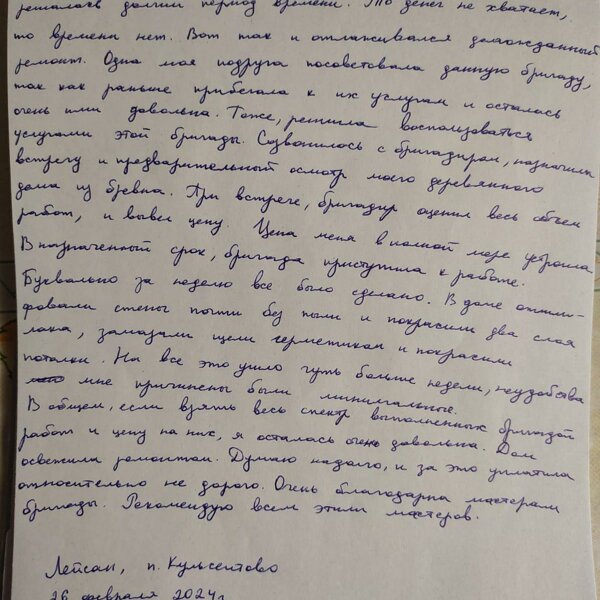 решалась долгий период времени. То денег не хватает,
то времени нет. Вот так и откладывался долгожданный
ремонт. Одна моя подруга посоветовала данную бригаду,
так как раньше прибегала к их услугам и осталась
очень ими довольна. Тоже, решила воспользоваться
услугами этой бригады. Созвонилось с бригадиром, назначили
встречу и предварительный осмотр моего деревянного
дома из бревна. При встрече, бригадир оценил весь объем
работ, и вывел цену. Цена меня в полной мере устроила
В назначенный срок, бригада приступила к работе.
Буквально за неделю все было сделано. В доме отшли-
фовали стены почти без пыли и покрасили два слоя
лака, замазали щели герметиком и покрасили
потолки. На все это ушло чуть больше недели, неудобства
мне причинены были минимальные.
В общем, если взять весь спектр выполненных бригадой
работ и цену на них, я осталась очень довольна. Дом
освежила ремонтом. Думаю надолго, и за это уплатила
относительно не дорого. Очень благодарна мастерам
бригады. Рекомендую всем этих мастеров.
Лейсан, п.
26 февраля 2024г